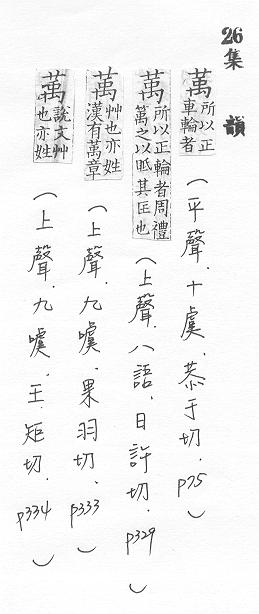 26集 韻
萭所以正車輪者(平聲.十虞.恭于切.p75)
萭所以正輪者周禮萭之以眡其匡也(上聲.八語.日許切.p329)
萭艸也亦姓漢有萭章(上聲.九噳.果羽切.p333)
萭說文艸也亦姓(上聲.九噳.王矩切.p334)